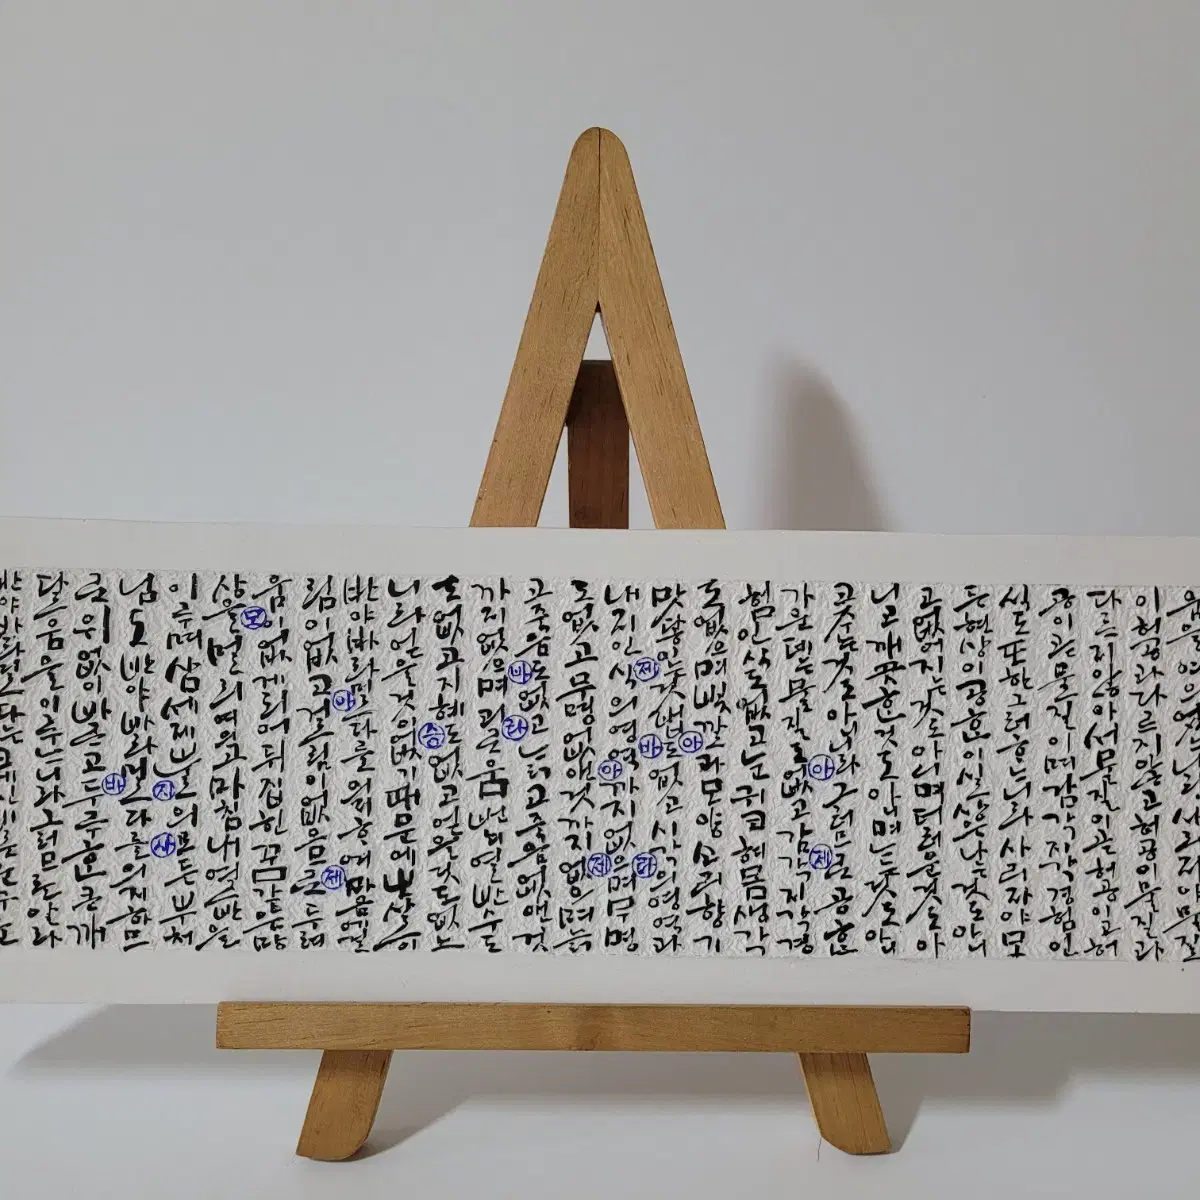 이 허공과 다르지 않고 허공이 물질과
다르지 않아서 물질이 곧 허공이고 허
공이 곧 물질이며 감각 지각 경험 인
식도 또한 그러하느니라 사리자야 모
든 현상이 공한 이 실상은 나는 것도 아니
고 없어지는 것도 아니며 더러운 것도 아
니고 깨끗한 것도 아니며 느는 것도 아니
고 주는 것도 아니니라 그러므로 공한
가운데는 물질도 없고 감각 지각 경
험 인식도 없고 눈 귀 코 혀 몸 생각
도 없으며 빛깔과 모양 소리 향기
맛 닿는 것 법도 없고 시각의 영역과
내지 인식의 영역까지 없으며 무명
도 없고 무명 없앤 것까지 없으며 늙
고 죽음도 없고 늙고 죽음 없앤 것
까지 없으며 괴로움 번뇌 열반 수도
도 없고 지혜도 없고 얻은 것도 없느
니라 얻을 것이 없기 때문에 보살이
반야바라밀다를 의지하여 마음에 걸
림이 없고 걸림이 없으므로 두려
움이 없게 되며 뒤집힌 꿈같은 망
상을 멀리 여의고 마침내 열반을
이루며 삼세 의 모든 부처
님도 반야바라밀다를 의지하므
로 위없이 바르고 두루한 큰 깨
달음을 이루느니라 그러므로 알라
반야바라밀다는
제
아
아
제
바
라
아
제
바
라
승
아
제
모
지
사
바